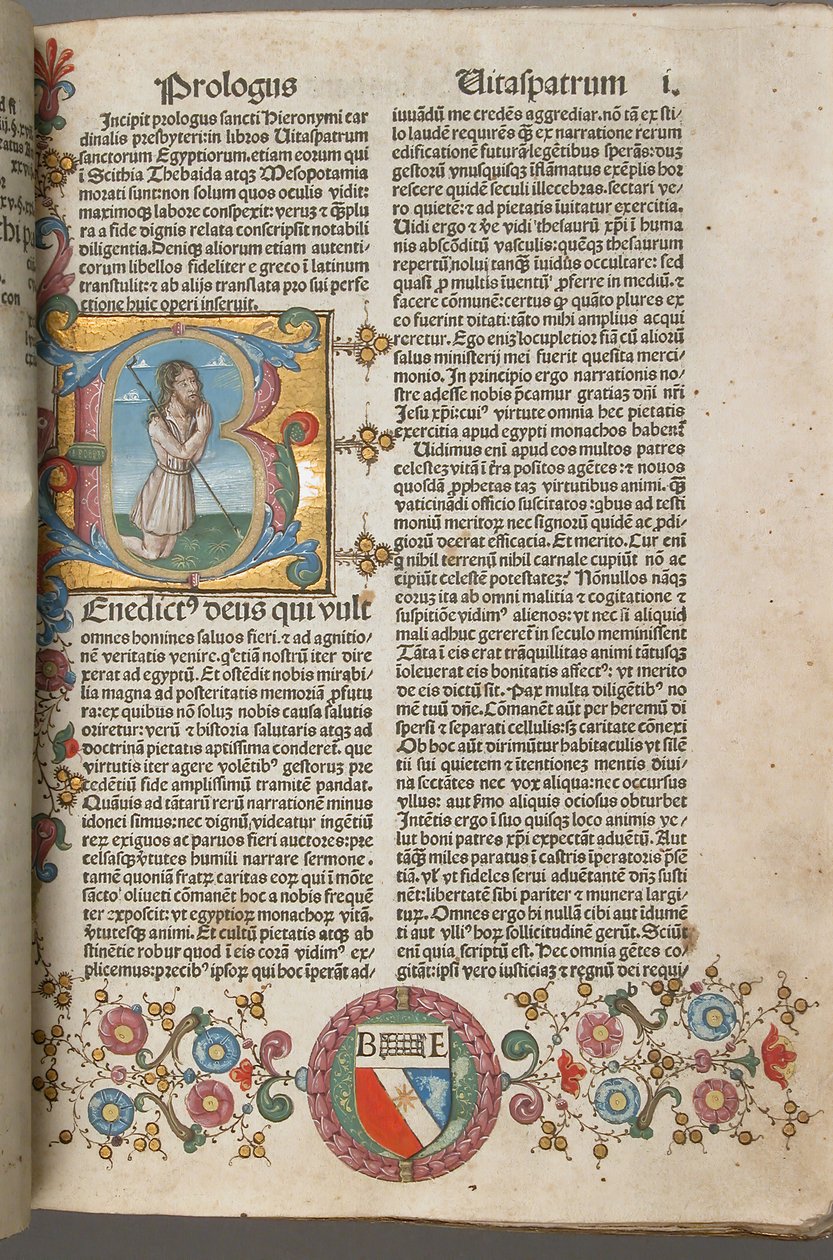 Prologus
Incipit prologus sancti Hieronymi car
dinalis presbyteri:in libros Uitaspatrum
sanctorum Egyptiorum.etiam eorum qui
ī Scithia Thebaida atqȝ Mesopotamia
morati sunt:non solum quos oculis vidit:
maximoqȝ labore conspexit:veruȝ ⁊ qȝplu
ra a fide dignis relata conscripsit notabili
diligentia.Deniqȝ aliorum etiam autenti⸗
corum libellos fideliter e greco ī latinum
transtulit:⁊ ab alijs translata pro sui perfe
ctione huic operi inseruit.
Enedictꝰ deus qui vult
omnes homines saluos fieri.⁊ ad agnitio⸗
nē veritatis venire.q̇ etiā nostrū iter dire
xerat ad egyptū.Et ostēdit nobis mirabi⸗
lia magna ad posteritatis memoriā ꝓfutu
ra:ex quibus nō soluȝ nobis causa salutis
oriretur:verū ⁊ historia salutaris atqȝ ad
doctrinā pietatis aptissima conderet̄. que
virtutis iter agere volētibꝰ gestoruȝ pre
cedētiū fide amplissimū tramitē pandat.
Quāuis ad tātarū rerū narrationē minus
idonei simus:nec dignū videatur ingētiū
reꝝ exiguos ac paruos fieri auctores:pre
celsasqȝ v̄tutes humili narrare sermone.
tamē quoniā fratꝝ caritas eoꝝ qui ī mōte
sācto oliueti cōmanēt hoc a nobis frequē
ter exposcit:vt egyptioꝝ monachoꝝ vitā.
v̄tutesqȝ animi. Et cultū pietatis atqȝ ab
stinētie robur quod ī eis corā vidimꝰ ex⸗
plicemus:precibꝰ ipsoꝝ qui hoc īperāt ad⸗
Uitaspatrum i.
iuuādū me credēs aggrediar.nō tā ex sti⸗
lo laudē requirēs qȝ ex narratione rerum
edificationē futurā legētibus sperās:duȝ
gestorū vnusquisqȝ īflāmatus exēplis hor
rescere quidē seculi illecebras.sectari ve⸗
ro quietē:⁊ ad pietatis īuitatur exercitia.
Uidi ergo ⁊ v̄e vidi thesaurū xp̄i ī huma
nis abscōditū vasculis:quēqȝ thesaurum
repertū nolui tanqȝ īuidꝰ occultare: sed
quasi ꝓ multis iuentū ꝓferre in mediū.⁊
facere cōmunē:certus ꝙ quāto plures ex
eo fuerint ditati:tāto mihi amplius acqui
reretur. Ego eniȝ locupletior fiā cū aliorū
salus ministerij mei fuerit quesita merci⸗
monio. In principio ergo narrationis no⸗
stre adesse nobis p̄camur gratiaȝ dn̄i nr̄i
Jesu xp̄i:cuiꝰ virtute omnia hec pietatis
exercitia apud egypti monachos habent̄
Uidimus enī apud eos multos patres
celesteȝ vitā ī t̄ra positos agētes:⁊ nouos
quosdā ꝓphetas taȝ virtutibus animi.qȝ
vaticinādi officio suscitatos:qbus ad testi
moniū meritoꝝ nec signorū quidē ac ꝓdi⸗
giorū deerat efficacia. Et merito. Cur enī
q nihil terrenū nihil carnale cupiūt nō ac
cipiūt celestē potestateȝ? Nōnullos nāqȝ
eoruȝ ita ab omni malitia ⁊ cogitatione ⁊
suspitiōe vidimꝰ alienos: vt nec si aliquid
mali adhuc gereret̄ in seculo meminissent
Tāta ī eis erat trāquillitas animi tātusqȝ
īoleuerat eis bonitatis affectꝰ: vt merito
de eis dictū sit. Pax multa diligētibꝰ no
mē tuū dn̄e. Cōmanēt aūt per heremū di
spersi ⁊ separati cellulis:sȝ caritate cōnexi
Ob hoc aūt dirimūtur habitaculis vt silē
tii sui quietem ⁊ ītentionez mentis diui⸗
na sectātes nec vox aliqua:nec occursus
vllus: aut s̄mo aliquis ociosus obturbet
Intētis ergo ī suo quisqȝ loco animis ve⸗
lut boni patres xp̄i expectāt aduētū. Aut
tāqȝ miles paratus ī castris īperatoris p̄sē
tiā. vl̄ vt fideles serui aduētantē dn̄ȝ susti
nēt:libertatē sibi pariter ⁊ munera largi⸗
tuꝝ. Omnes ergo hi nullā cibi aut īdumē
ti aut vlliꝰ hoꝝ sollicitudinē gerūt. Sciūt
enī quia scriptū est. Hec omnia gētes co⸗
gitāt:ipsi vero iusticiaȝ ⁊ regnū dei requi⸗
b
B E